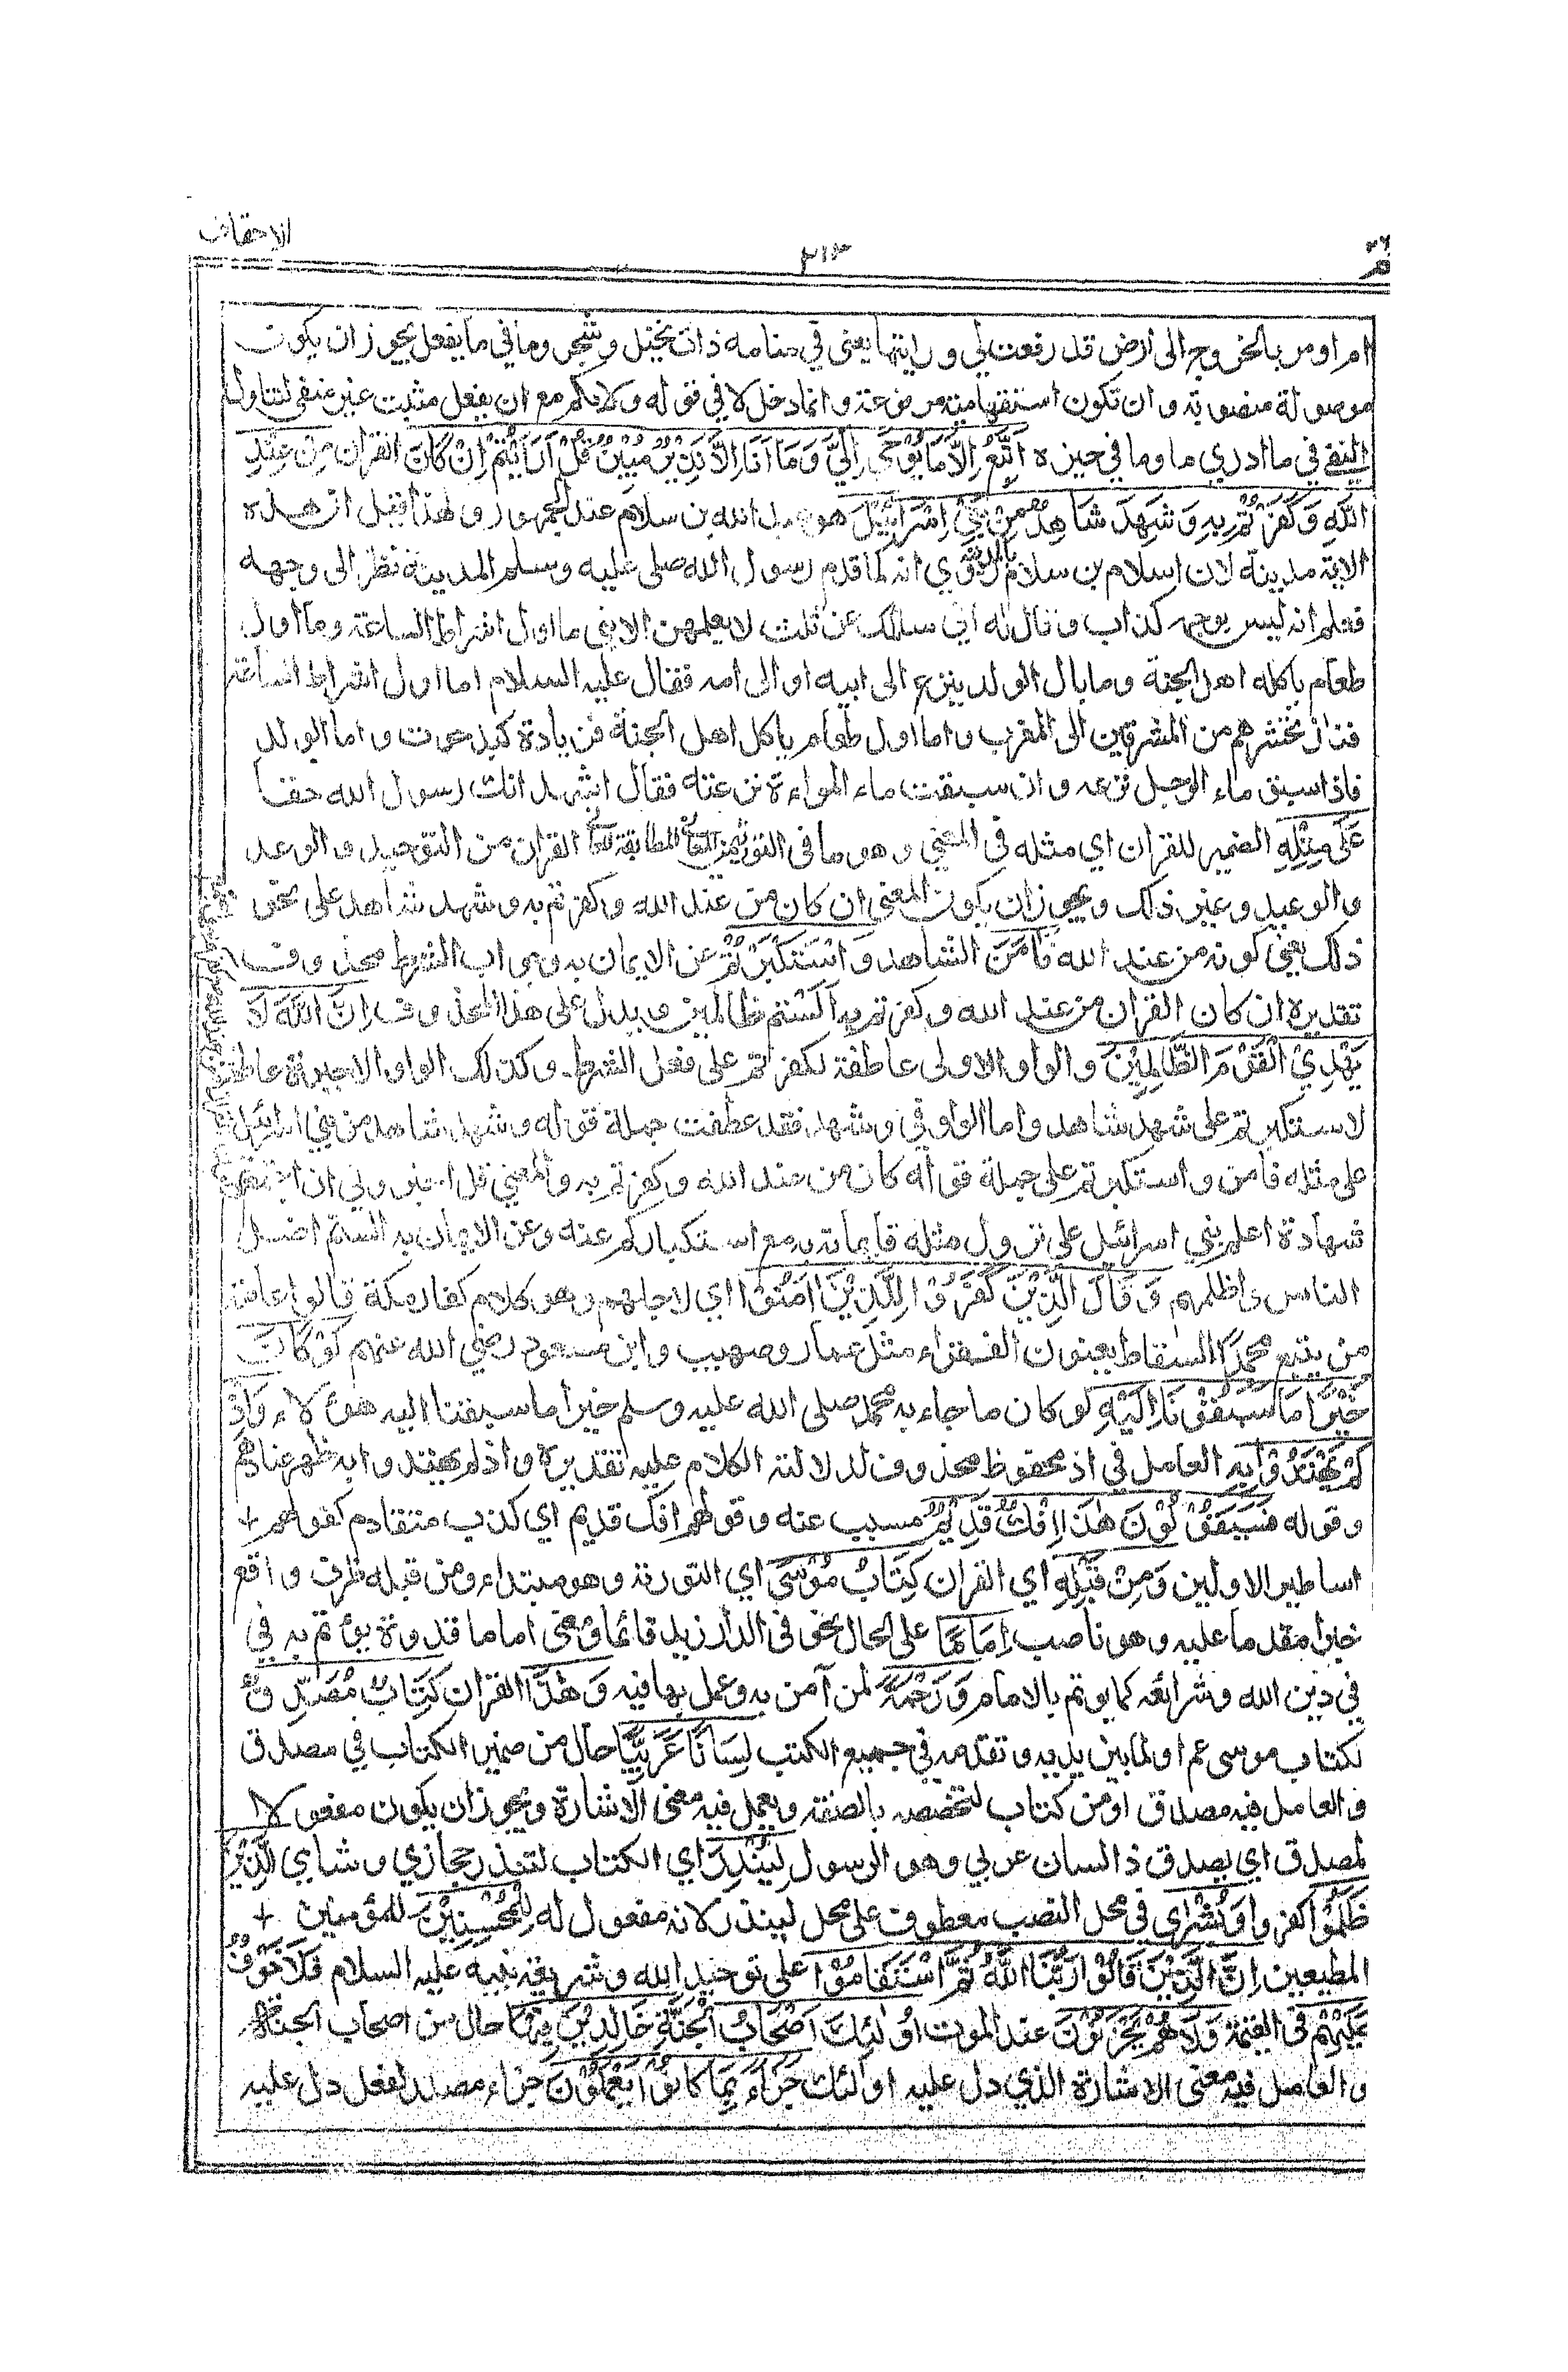 حٰم ٢٦
٢١٣
الاحقاف
ام اومر بالخروج الى ارض قد رفعت لي و رايتها يعني في منامه ذات نخيل و شجر وما في ما يفعل يجوز ان يكون
موصولة منصوبة و ان تكون استفهامية مرفوعة و انما دخل لا في قوله ولا بكم مع ان يفعل مثبت غير منفي لتناول
النفي في ما ادري ما وما في حيزه اَتَّبِعُ اِلَّا مَا يُوْحٰى اِلَيَّ وَمَا اَنَا اِلَّا نَذِيْرٌ مُبِيْنٌ قُلْ اَرَاَيْتُمْ اِنْ كَانَ القران مِنْ عِنْدِ
اللّٰهِ وَكَفَرْتُمْ بِهِ وَشَهِدَ شَاهِدٌ مِنْ بَنِيْ اِسْرَائِيْلَ هو عبد الله بن سلام عند الجمهور و لهذا قيل ان هذه
الاية مدينة لان اسلام بن سلام بالمدينة روي انه لما قدم رسول الله صلى عليه وسلم المدينة نظر الى وجهه
فعلم انه ليس بوجه كذاب و قال له اني سائلك عن ثلث لا يعلمهن الا نبي ما اول اشراط الساعة وما اول
طعام ياكله اهل الجنة وما بال الولد ينزع الى ابيه او الى امه فقال عليه السلام اما اول اشراط الساعة
فنار تحشرهم من المشرقين الى المغرب و اما اول طعام ياكل اهل الجنة فزيادة كبد حوت و اما الولد
فاذا سبق ماء الرجل نزعه و ان سبقت ماء المراءة نزعته فقال اشهد انك رسول الله حقا
عَلٰى مِثْلِهِ الضمير للقران اي مثله في المعنى وهو ما في التورية من المعاني المطابقة لمعاني القران من التوحيد و الوعد
والوعيد وغير ذلك ويجوز ان يكون المعنى ان كان من عند الله وكفرتم به و شهد شاهد على نحو
ذلك يعني كونه من عند الله فَاٰمَنَ الشاهد وَاسْتَكْبَرْتُمْ عن الايمان به وجواب الشرط محذوف
تقديره ان كان القران من عند الله وكفرتم به الستم ظالمين و يدل على هذا المحذوف اِنَّ اللّٰهَ لَا
يَهْدِي الْقَوْمَ الظَّالِمِيْنَ والواو الاولى عاطفة لكفرتم على فعل الشرط وكذلك الواو الاخيرة عاطفة
لاستكبرتم على شهد شاهد واما الواو في وشهد فقد عطفت جملة قوله وشهد شاهد من بني اسرائيل
على مثله فامن و استكبرتم على جملة قوله كان من عند الله وكفرتم به والمعنى قل اخبروني ان اجتمع
شهادة اعلم بني اسرائيل على نزول مثله فايمانه به مع استكباركم عنه وعن الايمان به الستم اضل
الناس و اظلمهم وَقَالَ الَّذِيْنَ كَفَرُوْا لِلَّذِيْنَ اٰمَنُوْا اي لاجلهم وهو كلام كفار مكة قالوا عامة
من يتبع محمدًا السقاط يعنون الفقراء مثل عمار وصهيب وابن مسعود رضي الله عنهم لَوْ كَانَ
خَيْرًا مَا سَبَقُوْنَا اِلَيْهِ لو كان ما جاء به محمد صلى الله عليه وسلم خيرا ما سبقنا اليه هؤلاء وَاِذْ
لَمْ يَهْتَدُوْا بِهِ العامل في اذ محفوظ محذوف لدلالة الكلام عليه تقديره واذ لم يهتدوا به ظهر عنادهم
وقوله فَسَيَقُوْلُوْنَ هٰذَا اِفْكٌ قَدِيْمٌ مسبب عنه وقولهم افك قديم اي كذب متقادم كقولهم
اساطير الاولين وَمِنْ قَبْلِهِ اي القران كِتَابُ مُوْسٰى اي التورىة وهو مبتداء ومن قبله ظرف واقع
خبرا مقدما عليه وهو ناصب اِمَامًا على الحال نحو في الدار زيد قائما ومعنى اماما قدوة يؤتم به في
في دين الله وشرائعه كما يوتم بالامام وَرَحْمَةً لمن آمن به وعمل بما فيه وَهٰذَا القران كِتَابٌ مُصَدِّقٌ
لكتاب موسى عم او لما بين يديه و تقدمه في جميع الكتب لِسَانًا عَرَبِيًّا حال من ضمير الكتاب في مصدق
والعامل فيه مصدق او من كتاب لتخصصه بالصفة ويعمل فيه معنى الاشارة ويجوز ان يكون مفعولا
لمصدق اي يصدق ذا لسان عربي وهو الرسول لِيُنْذِرَ اي الكتاب لتنذر حجازي وشامي الَّذِيْنَ
ظَلَمُوْا كفروا وَبُشْرٰى في محل النصب معطوف على محل لينذر لانه مفعول له لِلْمُحْسِنِيْنَ للمؤمنين
المطيعين اِنَّ الَّذِيْنَ قَالُوْا رَبُّنَا اللّٰهُ ثُمَّ اسْتَقَامُوْا على توحيد الله وشريعة نبيه عليه السلام فَلَا خَوْفٌ
عَلَيْهِمْ في القيمة وَلَا هُمْ يَحْزَنُوْنَ عند الموت اُولٰئِكَ اَصْحَابُ الْجَنَّةِ خَالِدِيْنَ فِيْهَا حال من اصحاب الجنة
والعامل فيه معنى الاشارة الذي دل عليه اولئك جَزَاءً بِمَا كَانُوْا يَعْمَلُوْنَ جزاء مصدر لفعل دل عليه